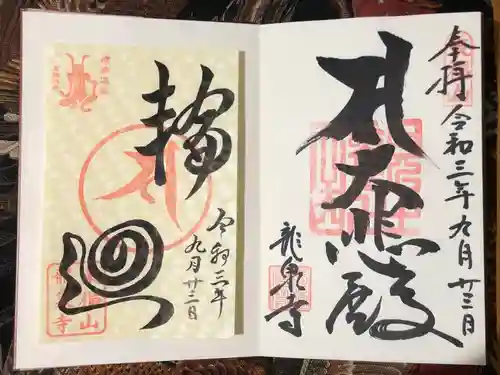 奉拝
令和三年九月廿三日
大悲殿
龍泉寺
輪廻
令和三年
九月廿三日